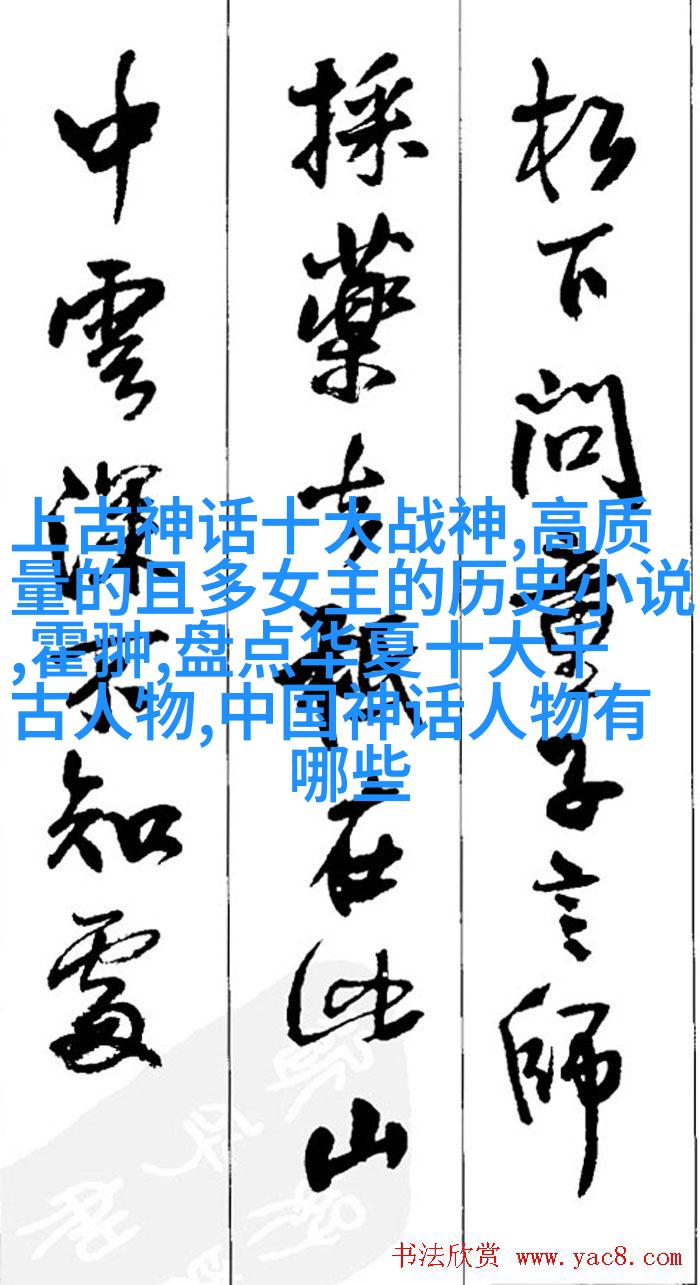 松下问童子言師
採藥去祇在此山
中雲深不知處
上古神话十大战神,高质
量的且多女主的历史小说
,霍翀,盘点华夏十大千
古人物,中国神话人物有
哪些
书法欣赏 www.yac8.com